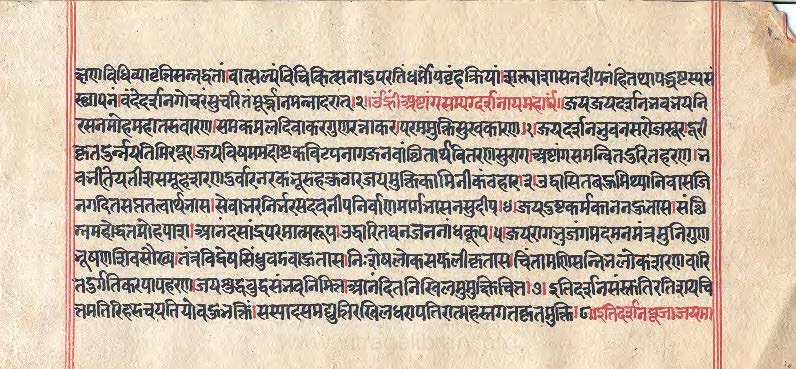 विधिव्यावृत्तिसन्नद्धतां। वात्सल्यं विचिकित्सनाडुपरतिं धर्मोपवृंहक्रियां। शक्त्याशासनदीपनं
स्थापनं। वंदेदर्शनगोचरं सुचरितं मूर्द्ध्नानमन्नादरात्।२॥ उँ ह्रीं अष्टांगसम्यग्दर्शनायमहार्घं॥ जयजयदर्शनभवभयनि
रसनमोहमहातमवारण। समकमलदिवाकरगुणरत्नाकर। परममुक्तिसुखकारण।१। जयदर्शनभुवनसरोजसूर। दूरी
कृतदुर्न्नयतिमिरपूर। जयविषममदाष्टकविटपनागजनवांछितार्थवितरणसुराग। अष्टांगसमन्वितदुरितहरण। भ
वभीतयतीशसमूहशरण। दुर्वारनरकभूरुहकुठारजयमुक्तिकामिनीकंठहार।३। उद्वासितबहुमिथ्यानिवासजि
नगदितसप्ततत्वार्थभास। सेवाभरनिर्भरसदवनीपनिर्वाणमार्गभासनसुदीप।४। जयदुष्टकर्मकाननहुतास। संछि
न्नमदोद्धतमोहपाश। आनंदसांद्रपरमात्मरूप। उद्धारितघनजननांधकूप।५। जयरागभुजगमदमनमंत्रमुनिगुण
भूषणशिवसौख्यतंत्रविद्वेषसिंधुवडवाहुतास। निःशेषलोकसफलीकृतास। चिंतामणिसन्निभलोकशरणवारि
तदुर्गतिकरपापहरण। जयशुद्धबुद्धसंभवनिमित्त। आनंदितनिखिलमुमुक्षुचित्त।७। इतिदर्शनसंस्कृतिरतिशयचि
त्तमतिरिहरचयतियोबहुभक्तिं। सस्यादसमद्युतिरखिलधरापतिरात्महस्तगतकृतमुक्ति।८। इतिदर्शनपूजाजयमा।